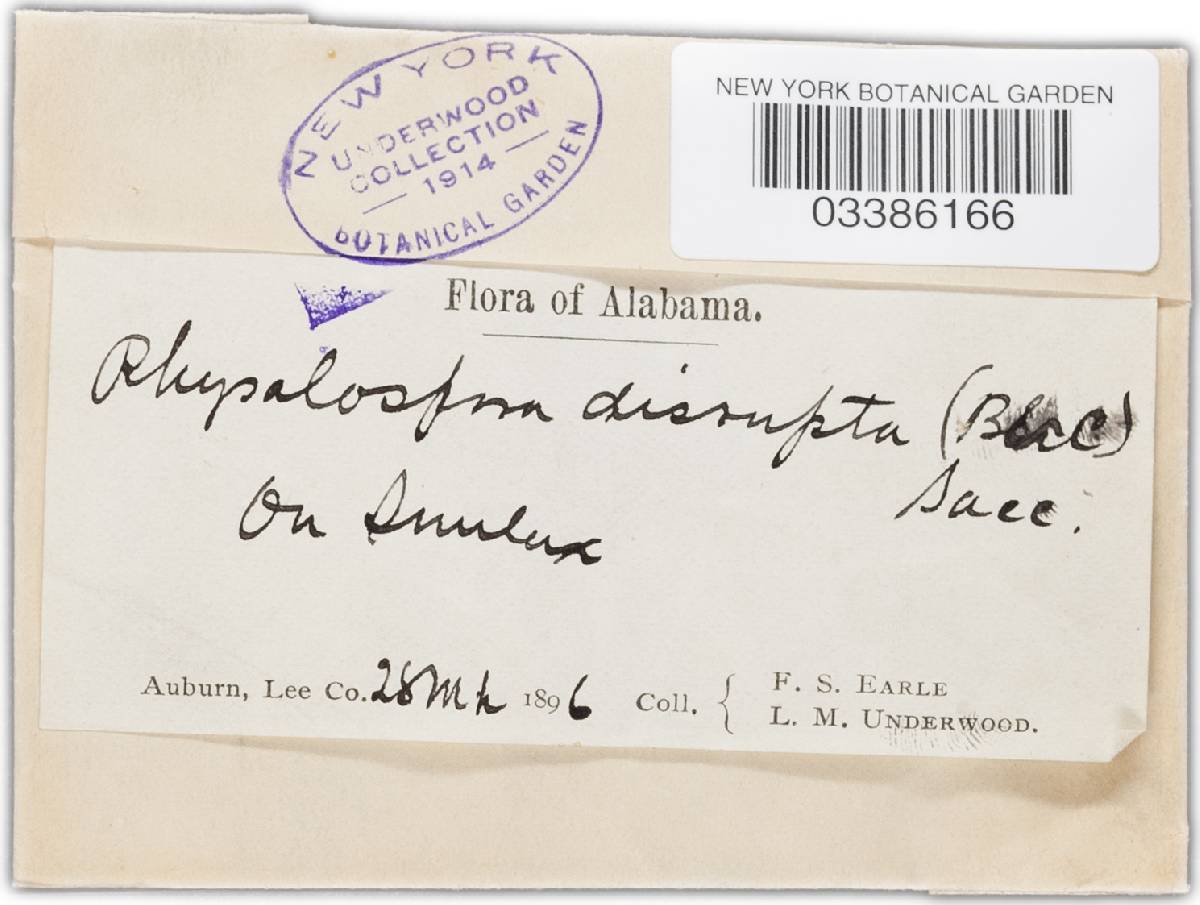 NEW YORK
UNDERWOOD
COLLECTION
— 1914 —
BOTANICAL GARDEN
NEW YORK BOTANICAL GARDEN
03386166
Flora of Alabama.
Physalospora disrupta (B&C)
Sacc.
On Smilax
Auburn, Lee Co. 28 Mh 1896 Coll. { F. S. EARLE
L. M. UNDERWOOD.